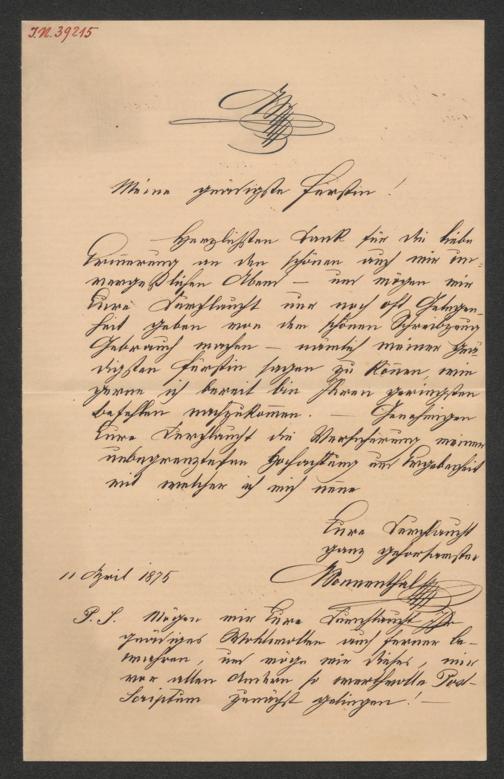 I.N. 39215
Meine gnädigste Fürstin!
Herzlichsten Dank für die liebe
Erinnerung an den schönen auch mir un-
vergeßlichen Abend – und mögen mir
Eure Durchlaucht nur noch oft Gelegen-
heit geben von dem schönen Schreibzeug
Gebrauch machen – nämlich meiner gnä-
digsten Fürstin sagen zu können, wie
gerne ich bereit bin Ihren geringsten
Befehlen nachzukommen. – Genehmigen
Eure Durchlaucht die Versicherung meiner
unbegrenztesten Hochachtung und Ergebenheit
mit welcher ich mich nenne
Eure Durchlaucht
ganz gehorsamster
Sonnenthal
11 April 1875
P. S. Mögen mir Eure Durchlaucht Ihr
gnädiges Wohlwollen auch ferner be-
wahren, und möge mir dieses, mir
vor allen Andern so werthvolle Post-
Scriptum zunächst gelingen! –